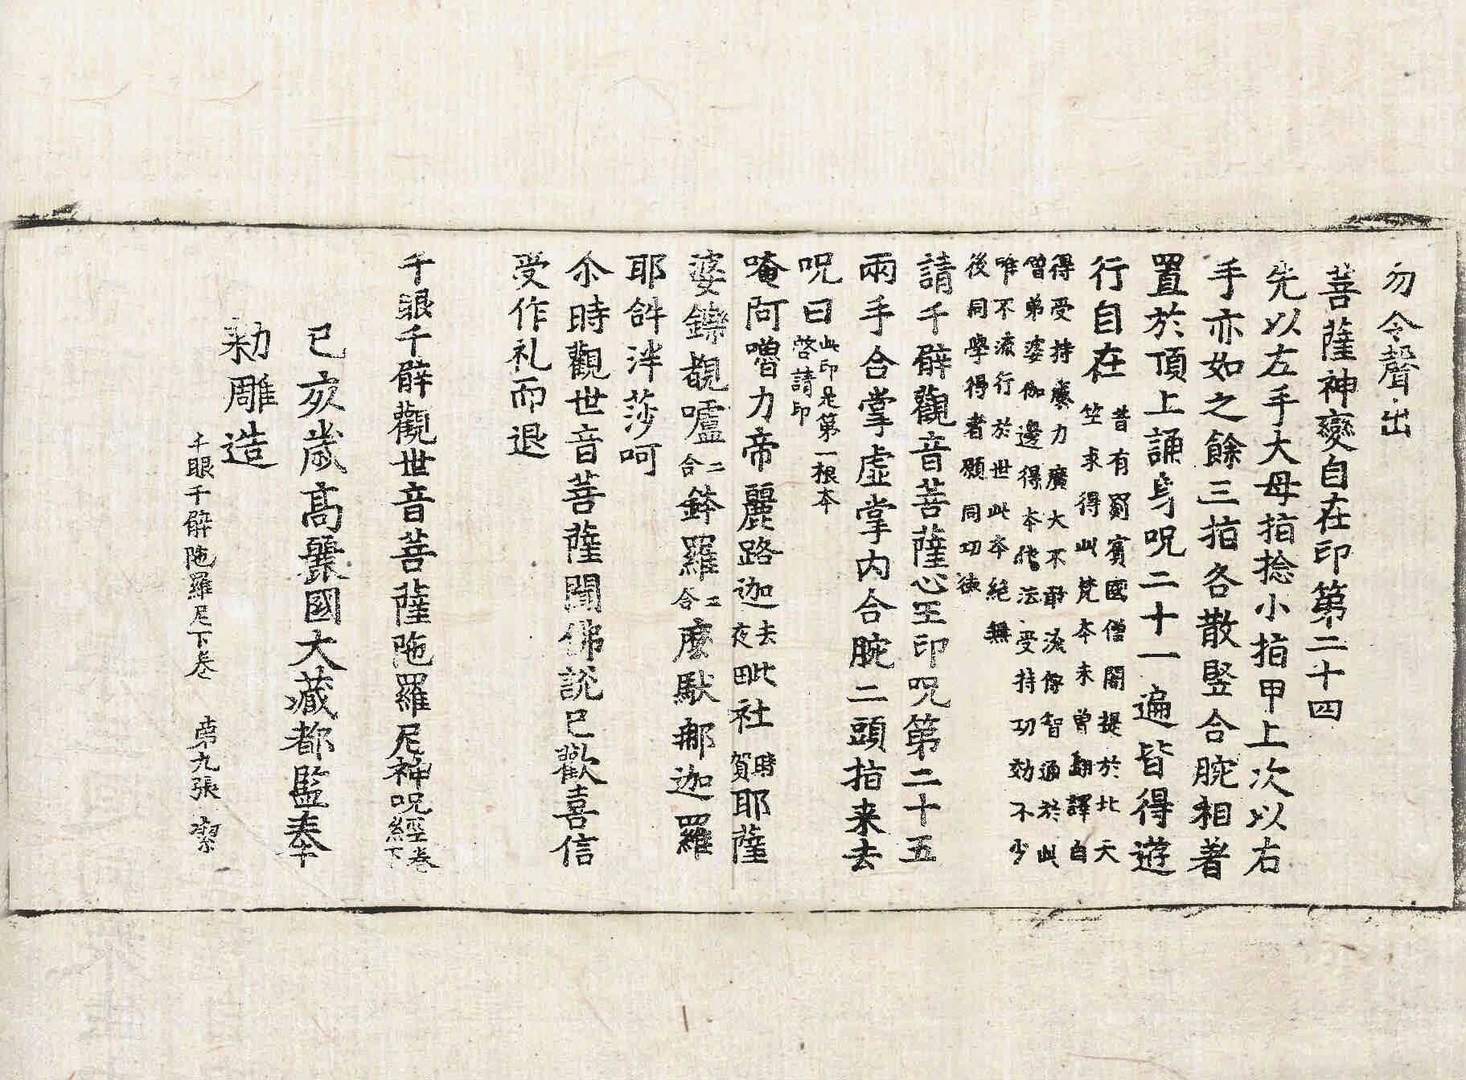 勿令聲出
菩薩神變自在印第二十四
先以左手大母指捻小指甲上次以右
手亦如之餘三指各散竪合腕相著
置於頂上誦身呪二十一遍皆得遊
行自在
昔有罽賓國僧闍提於北天
竺求得此梵本未曾翻譯自
得受持寱力廣大不敢流傳智通於此
僧弟婆伽邊得本依法受持功効不少
唯不流行於世此本絶無
後同學得者願同功德
請千臂觀音菩薩心王印呪第二十五
兩手合掌虛掌内合腕二頭指来去
呪曰
此印是第一根本
啓請印
唵阿嚕力帝麗路迦
去
夜
毗社
時
賀
耶薩
婆鑠覩嚧
二
合
鉢羅
二
合
麽馱那迦羅
耶𤙖泮莎呵
尒時觀世音菩薩聞佛説已歡喜信
受作礼而退
千眼千臂觀世音菩薩陁羅尼神呪經卷下
己亥歳高麗國大藏都監奉
勑雕造
千眼千臂陁羅尼下卷 第九張 潔